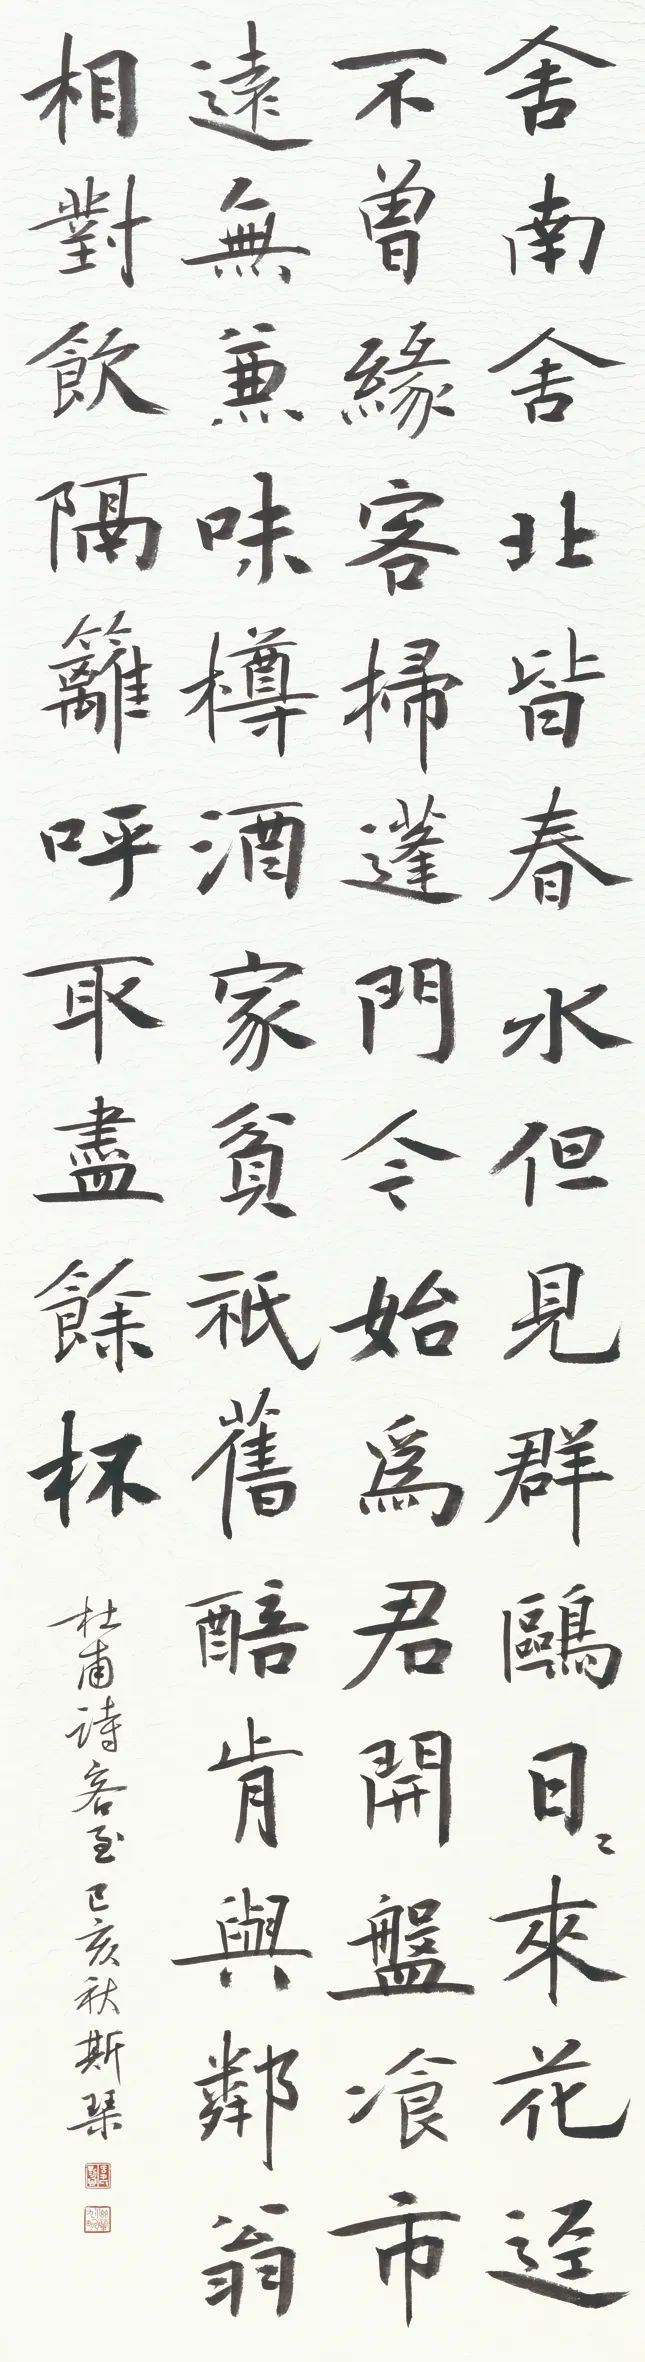 舍南舍北皆春水但見群鷗日〻來花迳
不曾緣客掃蓬門今始爲君開盤飡市
遠無兼味樽酒家貧祇舊醅肯與鄰翁
相對飲隔籬呼取盡餘杯
杜甫詩客至己亥秋斯琴